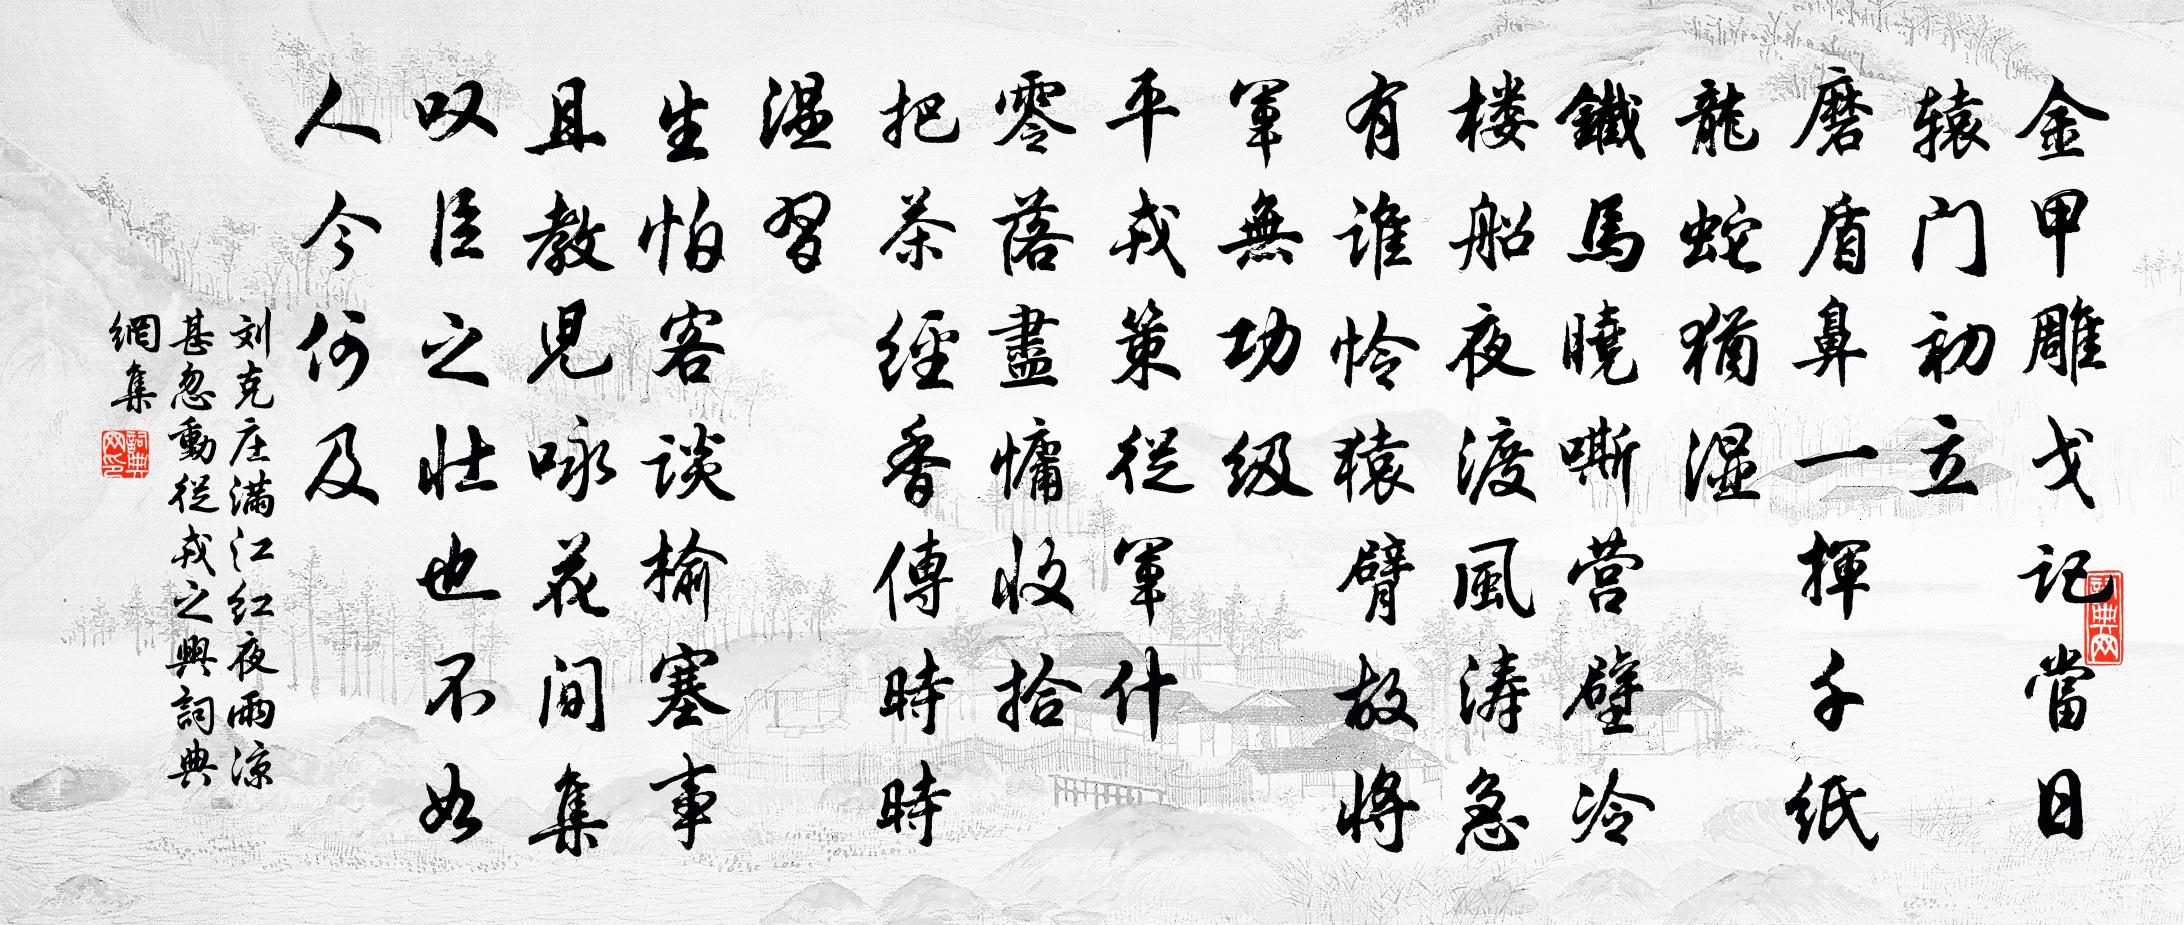 金甲雕戈记當日
辕门初立
磨盾鼻一揮千纸
龍蛇猶湿
鐵馬曉嘶营壁冷
楼船夜渡風涛急
有谁怜猿臂故将
軍無功级
平戎策從軍什
零落盡慵收拾
把茶經香傳時時
温習
生怕客谈榆塞事
且教児咏花间集
叹臣之壮也不如
人今何及
刘克庄满江红夜雨凉
甚忽動從戎之興詞典
網集
詞典网
詞典网印